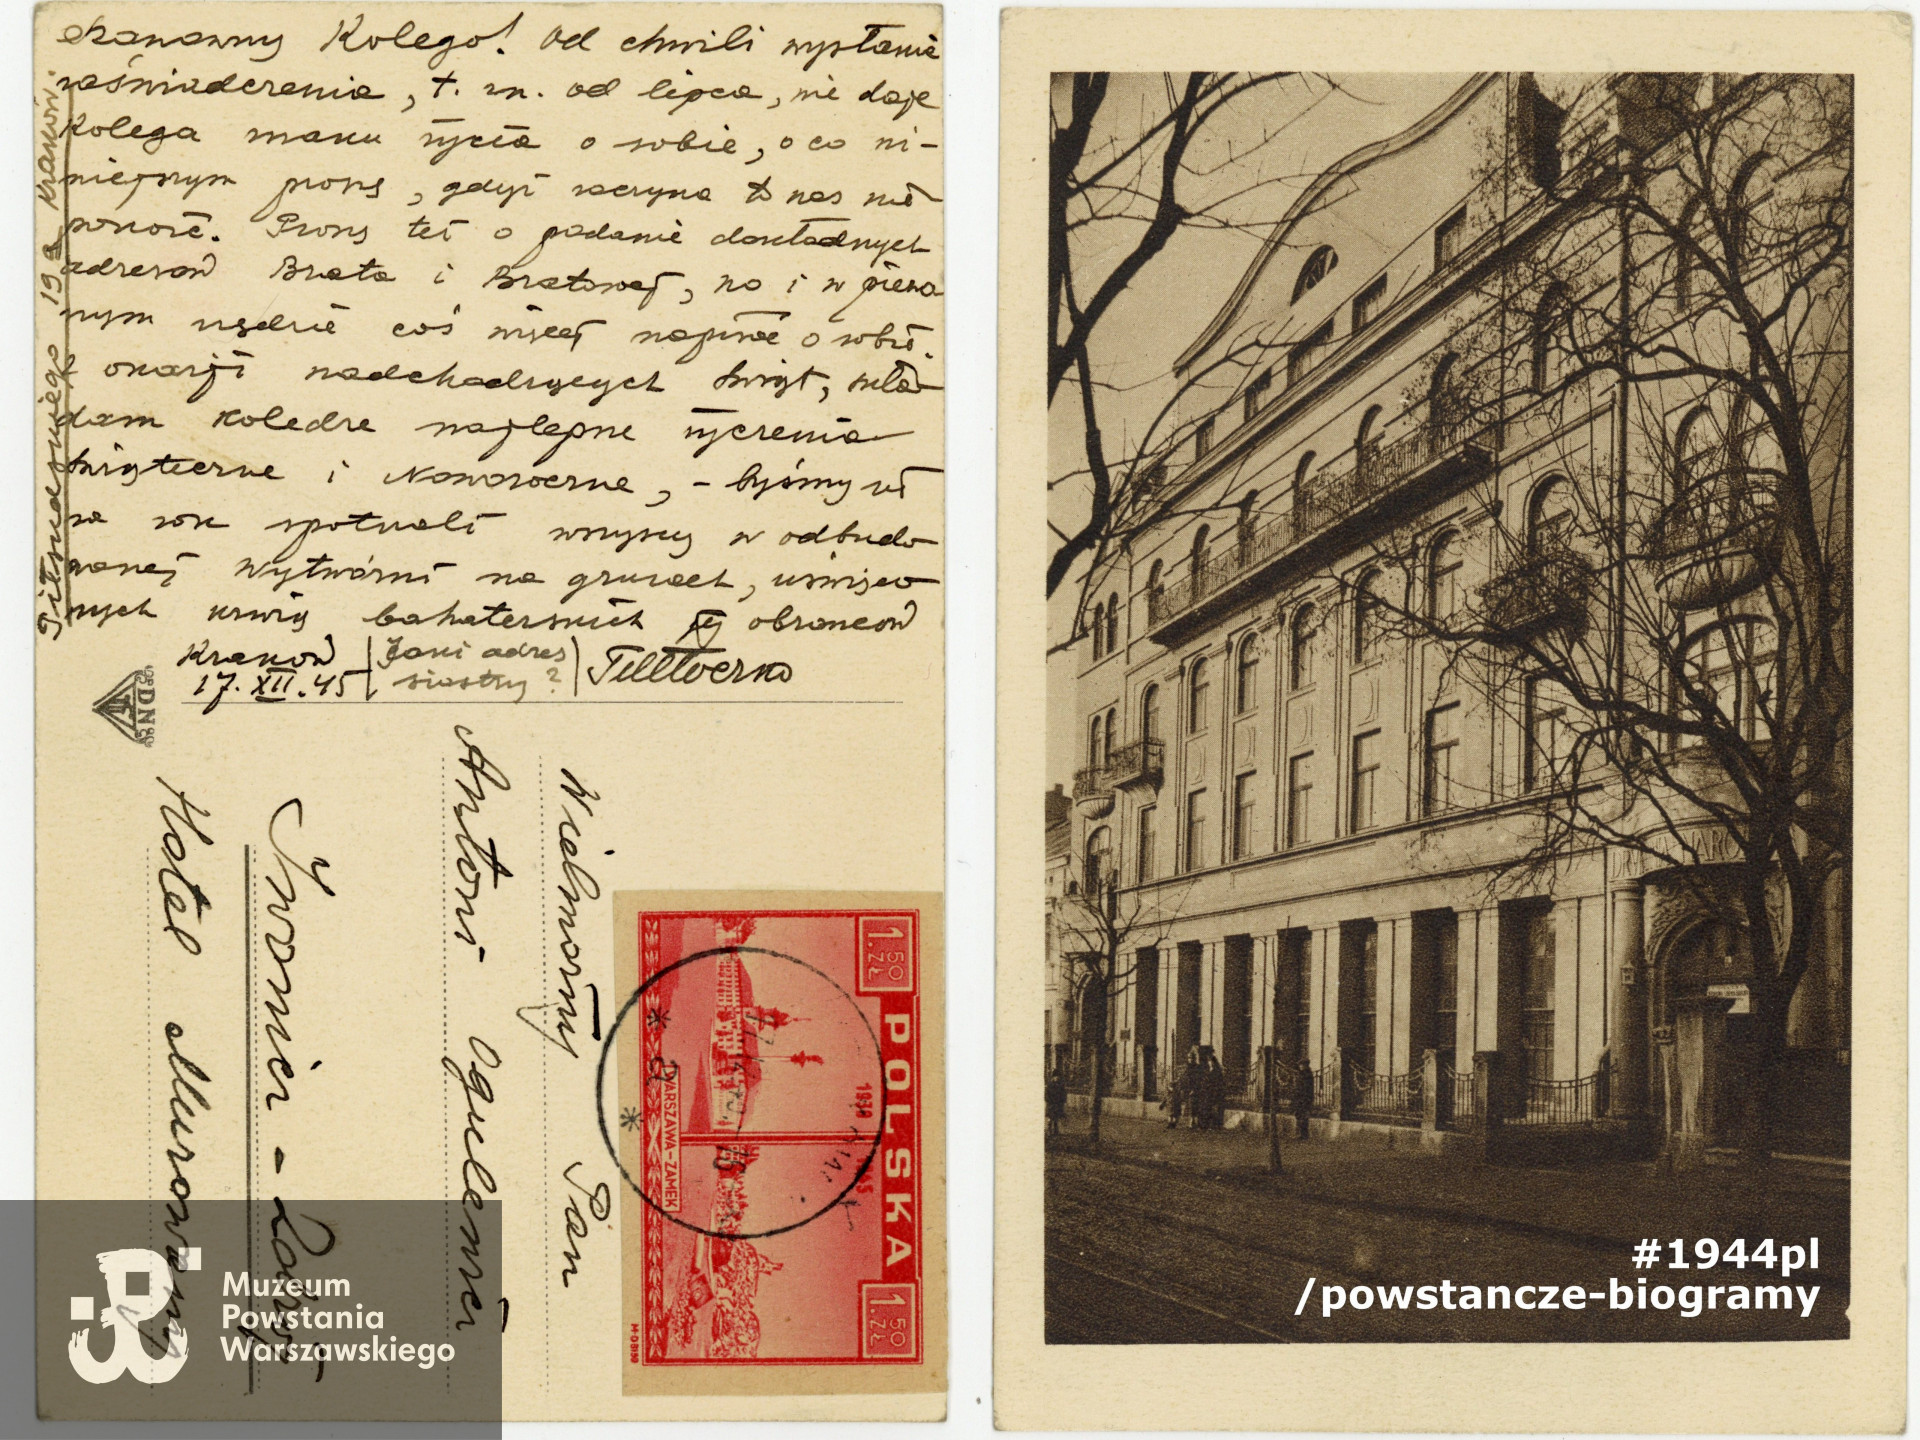 Szanowny Kolego! Od chwili wysłania
zaświadczenia, t. zn. od lipca, nie daje
Kolega znaku życia o sobie, o co ni-
niejszym proszę, gdyż zaczyna to nas nie
pokoić. Proszę też o podanie dokładnych
adresów Brata i Bratowej, no i w pierw
szym rzędzie coś niecoś napisać o sobie.
Z okazji nadchodzących Świąt, skła-
dam Koledze najlepsze życzenia
Świąteczne i Noworoczne, - byśmy się
za rok spotkali wszyscy w odbudo
wanej Wytwórni na gruzach, uświęco
nych krwią bohaterskich jej obrońców
Kraków
17.XII.45
(Jaki adres
siostry?)
Piłsudskiego 19 Kraków.
"ODN"
Wielmożny Pan
Antoni
Iwonicz - Zdrój
Hotel Murowany
1.50 ZŁ
POLSKA
1.50 ZŁ
1939 1945
WARSZAWA-ZAMEK
DR
ARO
Muzeum
Powstania
Warszawskiego
#1944pl
/powstancze-biogramy